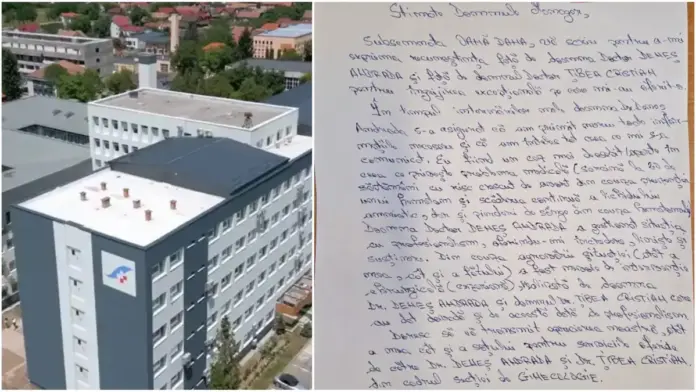 Stimate Domnule Manager,
Subsemnata DAHĂ DAHA, vă scriu pentru a-mi
exprima recunoștința față de doamna Doctor DENEȘ
ANDRADA și față de domnul Doctor ȚIBEA CRISTIAN
pentru îngrijirea excepțională pe care mi-au oferit-o.
În timpul internărilor mele doamna Dr. Deneș
Andrada s-a asigurat că am primit mereu toate infor-
mațiile necesare și că am înțeles tot ceea ce mi s-a
comunicat. Eu fiind un caz mai deosebit/aparte în
ceea ce privește problema medicală (sarcină
săptămâni cu risc crescut de avort din cauza
unui fibrom și scăderea continuă a lichidului
amniotic, dar și pierderi de sânge din cauza
Doamna Doctor DENEȘ ANDRADA a gestionat situația
cu profesionalism, oferindu-mi încredere, liniște și
susținere. Din cauza agravării situației (atât a
mea cât și a fătului) a fost nevoie de intervenție
chirurgicală (cezariană) realizată de doamna
Dr. DENEȘ ANDRADA și domnul Dr. ȚIBEA CRISTIAN care
au dat dovadă și de această dată de profesionalism.
Doresc să vă transmit aprecierea noastră, atât
a mea cât și a soțului pentru serviciile oferite
de către Dr. DENEȘ ANDRADA și Dr. ȚIBEA CRISTIAN
din cadrul secției de GINECOLOGIE.